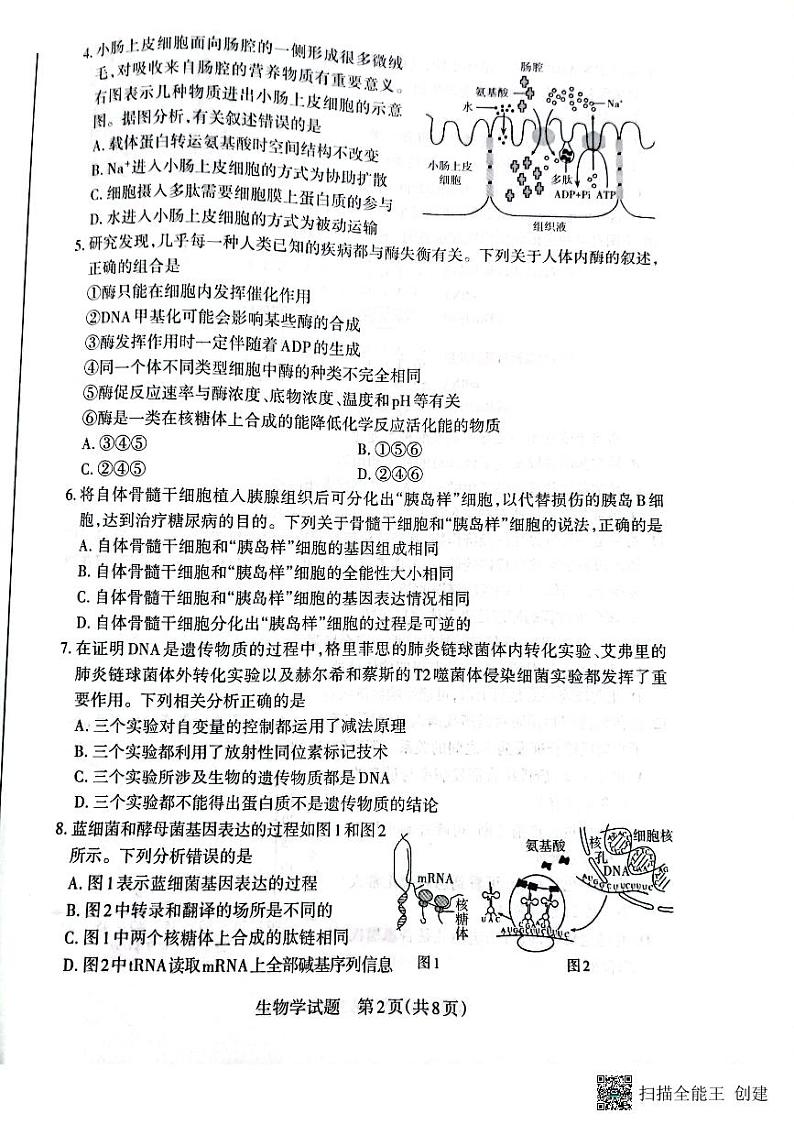 4. 小肠上皮细胞面向肠腔的一侧形成很多微绒
毛,对吸收来自肠腔的营养物质有重要意义。
右图表示几种物质进出小肠上皮细胞的示意
图。据图分析,有关叙述错误的是
A. 载体蛋白转运氨基酸时空间结构不改变
B. Na⁺进入小肠上皮细胞的方式为协助扩散
C. 细胞摄入多肽需要细胞膜上蛋白质的参与
D. 水进入小肠上皮细胞的方式为被动运输
肠腔
氨基酸
水
Na⁺
小肠上皮
细胞
多肽
ADP+Pi ATP
组织液
5. 研究发现,几乎每一种人类已知的疾病都与酶失衡有关。下列关于人体内酶的叙述,
正确的组合是
①酶只能在细胞内发挥催化作用
②DNA甲基化可能会影响某些酶的合成
③酶发挥作用时一定伴随着ADP的生成
④同一个体不同类型细胞中酶的种类不完全相同
⑤酶促反应速率与酶浓度、底物浓度、温度和pH等有关
⑥酶是一类在核糖体上合成的能降低化学反应活化能的物质
A. ③④⑤ B. ①⑤⑥
C. ②④⑤ D. ②④⑥
6. 将自体骨髓干细胞植入胰腺组织后可分化出“胰岛样”细胞,以代替损伤的胰岛B细
胞,达到治疗糖尿病的目的。下列关于骨髓干细胞和“胰岛样”细胞的说法,正确的是
A. 自体骨髓干细胞和“胰岛样”细胞的基因组成相同
B. 自体骨髓干细胞和“胰岛样”细胞的全能性大小相同
C. 自体骨髓干细胞和“胰岛样”细胞的基因表达情况相同
D. 自体骨髓干细胞分化出“胰岛样”细胞的过程是可逆的
7. 在证明DNA是遗传物质的过程中,格里菲思的肺炎链球菌体内转化实验、艾弗里的
肺炎链球菌体外转化实验以及赫尔希和蔡斯的T2噬菌体侵染细菌实验都发挥了重
要作用。下列相关分析正确的是
A. 三个实验对自变量的控制都运用了减法原理
B. 三个实验都利用了放射性同位素标记技术
C. 三个实验所涉及生物的遗传物质都是DNA
D. 三个实验都不能得出蛋白质不是遗传物质的结论
8. 蓝细菌和酵母菌基因表达的过程如图1和图2
所示。下列分析错误的是
A. 图1表示蓝细菌基因表达的过程
B. 图2中转录和翻译的场所是不同的
C. 图1中两个核糖体上合成的肽链相同
D. 图2中tRNA读取mRNA上全部碱基序列信息
mRNA
核糖体
图1
氨基酸
核孔
细胞核
DNA
AUGGCUUCUUUC
UAC
AUGGCUUCUUUC
图2
生物学试题 第2页(共8页)
扫描全能王 创建